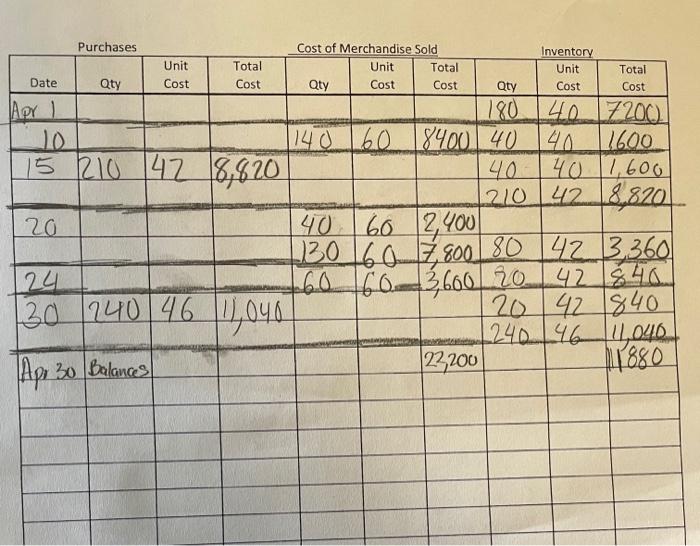 Purchases Cost of Merchandise Sold Inventory
Unit Total Unit Total Unit Total
Date Qty Cost Cost Qty Cost Cost Qty Cost Cost
Apr 1 180 40 7200
10 140 60 8400 40 40 1600
15 210 42 8,820 40 40 1,600
210 42 8,820
20 40 60 2,400
130 60 7,800 80 42 3,360
24 60 60 3,600 20 42 840
30 240 46 11,040 20 42 840
240 46 11,040
Apr 30 Balances 22,200 11880